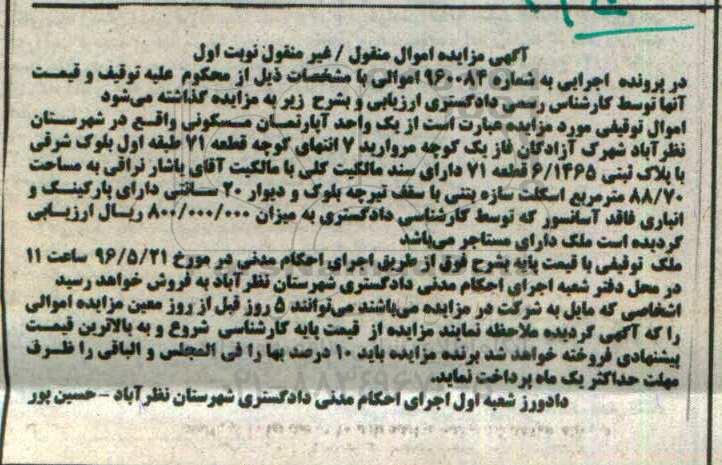 آگهی مزایده اموال منقول / غیر منقول نوبت اول
در پرونده اجرایی به شماره ۹۶۰۰۸۴ اموالی با مشخصات ذیل از محکوم علیه توقیف و قیمت
آنها توسط کارشناس رسمی دادگستری ارزیابی و بشرح زیر به مزایده گذاشته می‌شود
اموال توقیفی مورد مزایده عبارت است از یک واحد آپارتمان مسکونی واقع در شهرستان
نظرآباد شهرک آزادگان فاز یک کوچه مروارید ۷ انتهای کوچه قطعه ۷۱ طبقه اول بلوک شرقی
با پلاک ثبتی ۶/۱۴۶۵ قطعه ۷۱ دارای سند مالکیت کلی با مالکیت آقای یاشار نراقی به مساحت
۸۸/۷۰ مترمربع اسکلت سازه بتنی با سقف تیرچه بلوک و دیوار ۲۰ سانتی دارای پارکینگ و
انباری فاقد آسانسور که توسط کارشناسی دادگستری به میزان ۸۰۰/۰۰۰/۰۰۰ ریال ارزیابی
گردیده است ملک دارای مستاجر می‌باشد
ملک توقیفی با قیمت پایه بشرح فوق از طریق اجرای احکام مدنی در مورخ ۹۶/۵/۲۱ ساعت ۱۱
در محل دفتر شعبه اجرای احکام مدنی دادگستری شهرستان نظرآباد به فروش خواهد رسید
اشخاصی که مایل به شرکت در مزایده می‌باشند می‌توانند ۵ روز قبل از روز معین مزایده اموالی
را که آگهی گردیده ملاحظه نمایند مزایده از قیمت پایه کارشناسی شروع و به بالاترین قیمت
پیشنهادی فروخته خواهد شد برنده مزایده باید ۱۰ درصد بها را فی المجلس و الباقی را ظرف
مهلت حداکثر یک ماه پرداخت نماید.
دادورز شعبه اول اجرای احکام مدنی دادگستری شهرستان نظرآباد - حسین پور